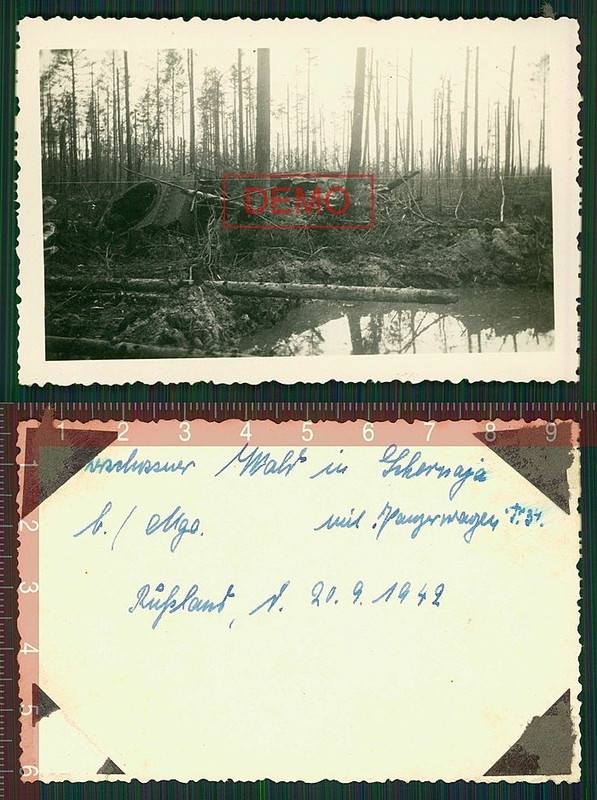 DEMO
1 2 3 4 5 6 7 8 9
1
2
3
4
5
6
Wald in
b./ Mga. mit Panzerwagen "T.34.
Rußland, d. 20.9.1942